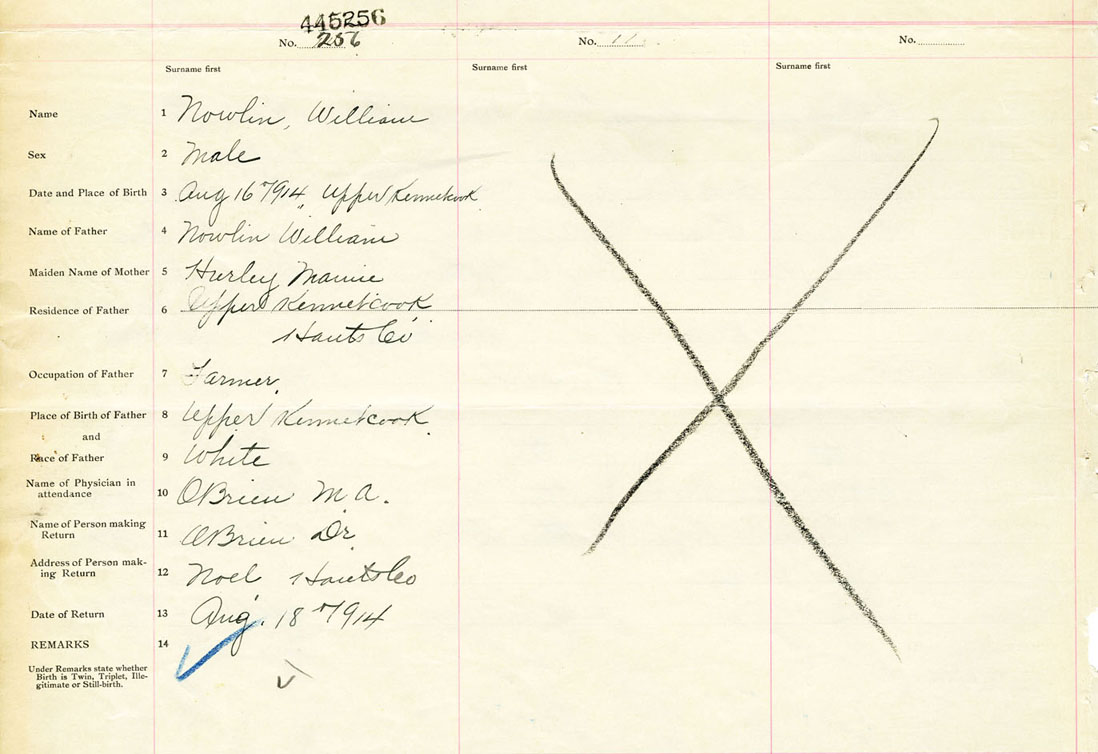 445256
No. 256
No. 11
No.
Surname first
Surname first
Surname first
Name 1 Nowlin, William
Sex 2 Male
Date and Place of Birth 3 Aug 16th 1914, Upper Kennetcook
Name of Father 4 Nowlin William
Maiden Name of Mother 5 Hurley Mamie
Residence of Father 6 Upper Kennetcook
Hants Co
Occupation of Father 7 Farmer
Place of Birth of Father 8 Upper Kennetcook
and
Race of Father 9 White
Name of Physician in
attendance 10 OBrien M A.
Name of Person making
Return 11 OBrien Dr
Address of Person mak-
ing Return 12 Noel Hants Co
Date of Return 13 Aug. 18th 1914
REMARKS 14
Under Remarks state whether
Birth is Twin, Triplet, Ille-
gitimate or Still-birth.